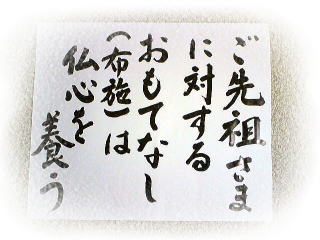 ご先祖さま
に対する
おもてなし
(布施)は
仏心を
養う